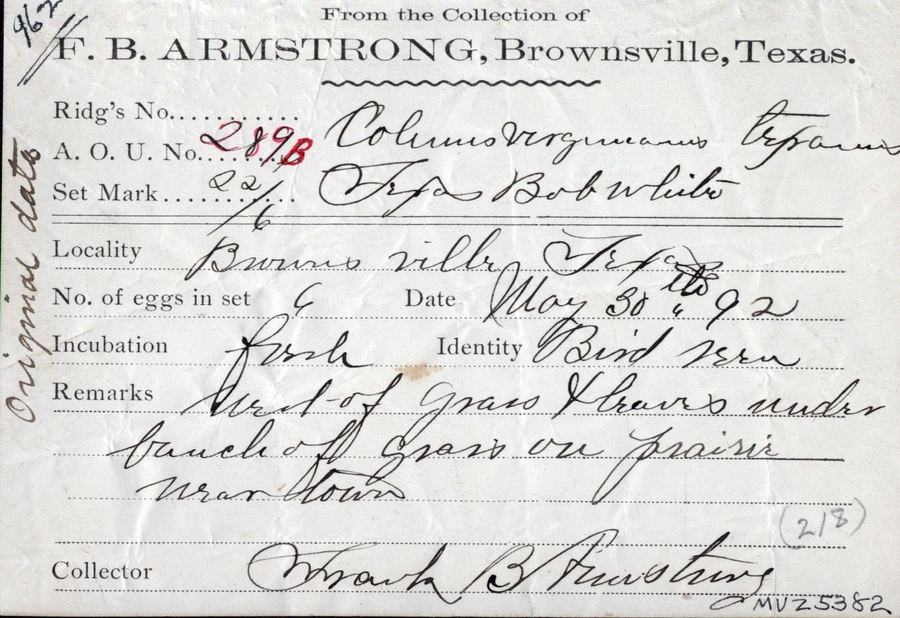 962
From the Collection of
F. B. ARMSTRONG, Brownsville, Texas.
Ridg's No.
A. O. U. No. 289B Colinus virginianus texanus
Set Mark 22/6 Texas Bob White
Locality Brownsville Texas
No. of eggs in set 6 Date May 30th " 92
Incubation fresh Identity Bird seen
Remarks nest of grass & leaves under
bunch of grass on prairie
near town
(218)
Collector Frank B Armstrong
MVZ 5382
Original data